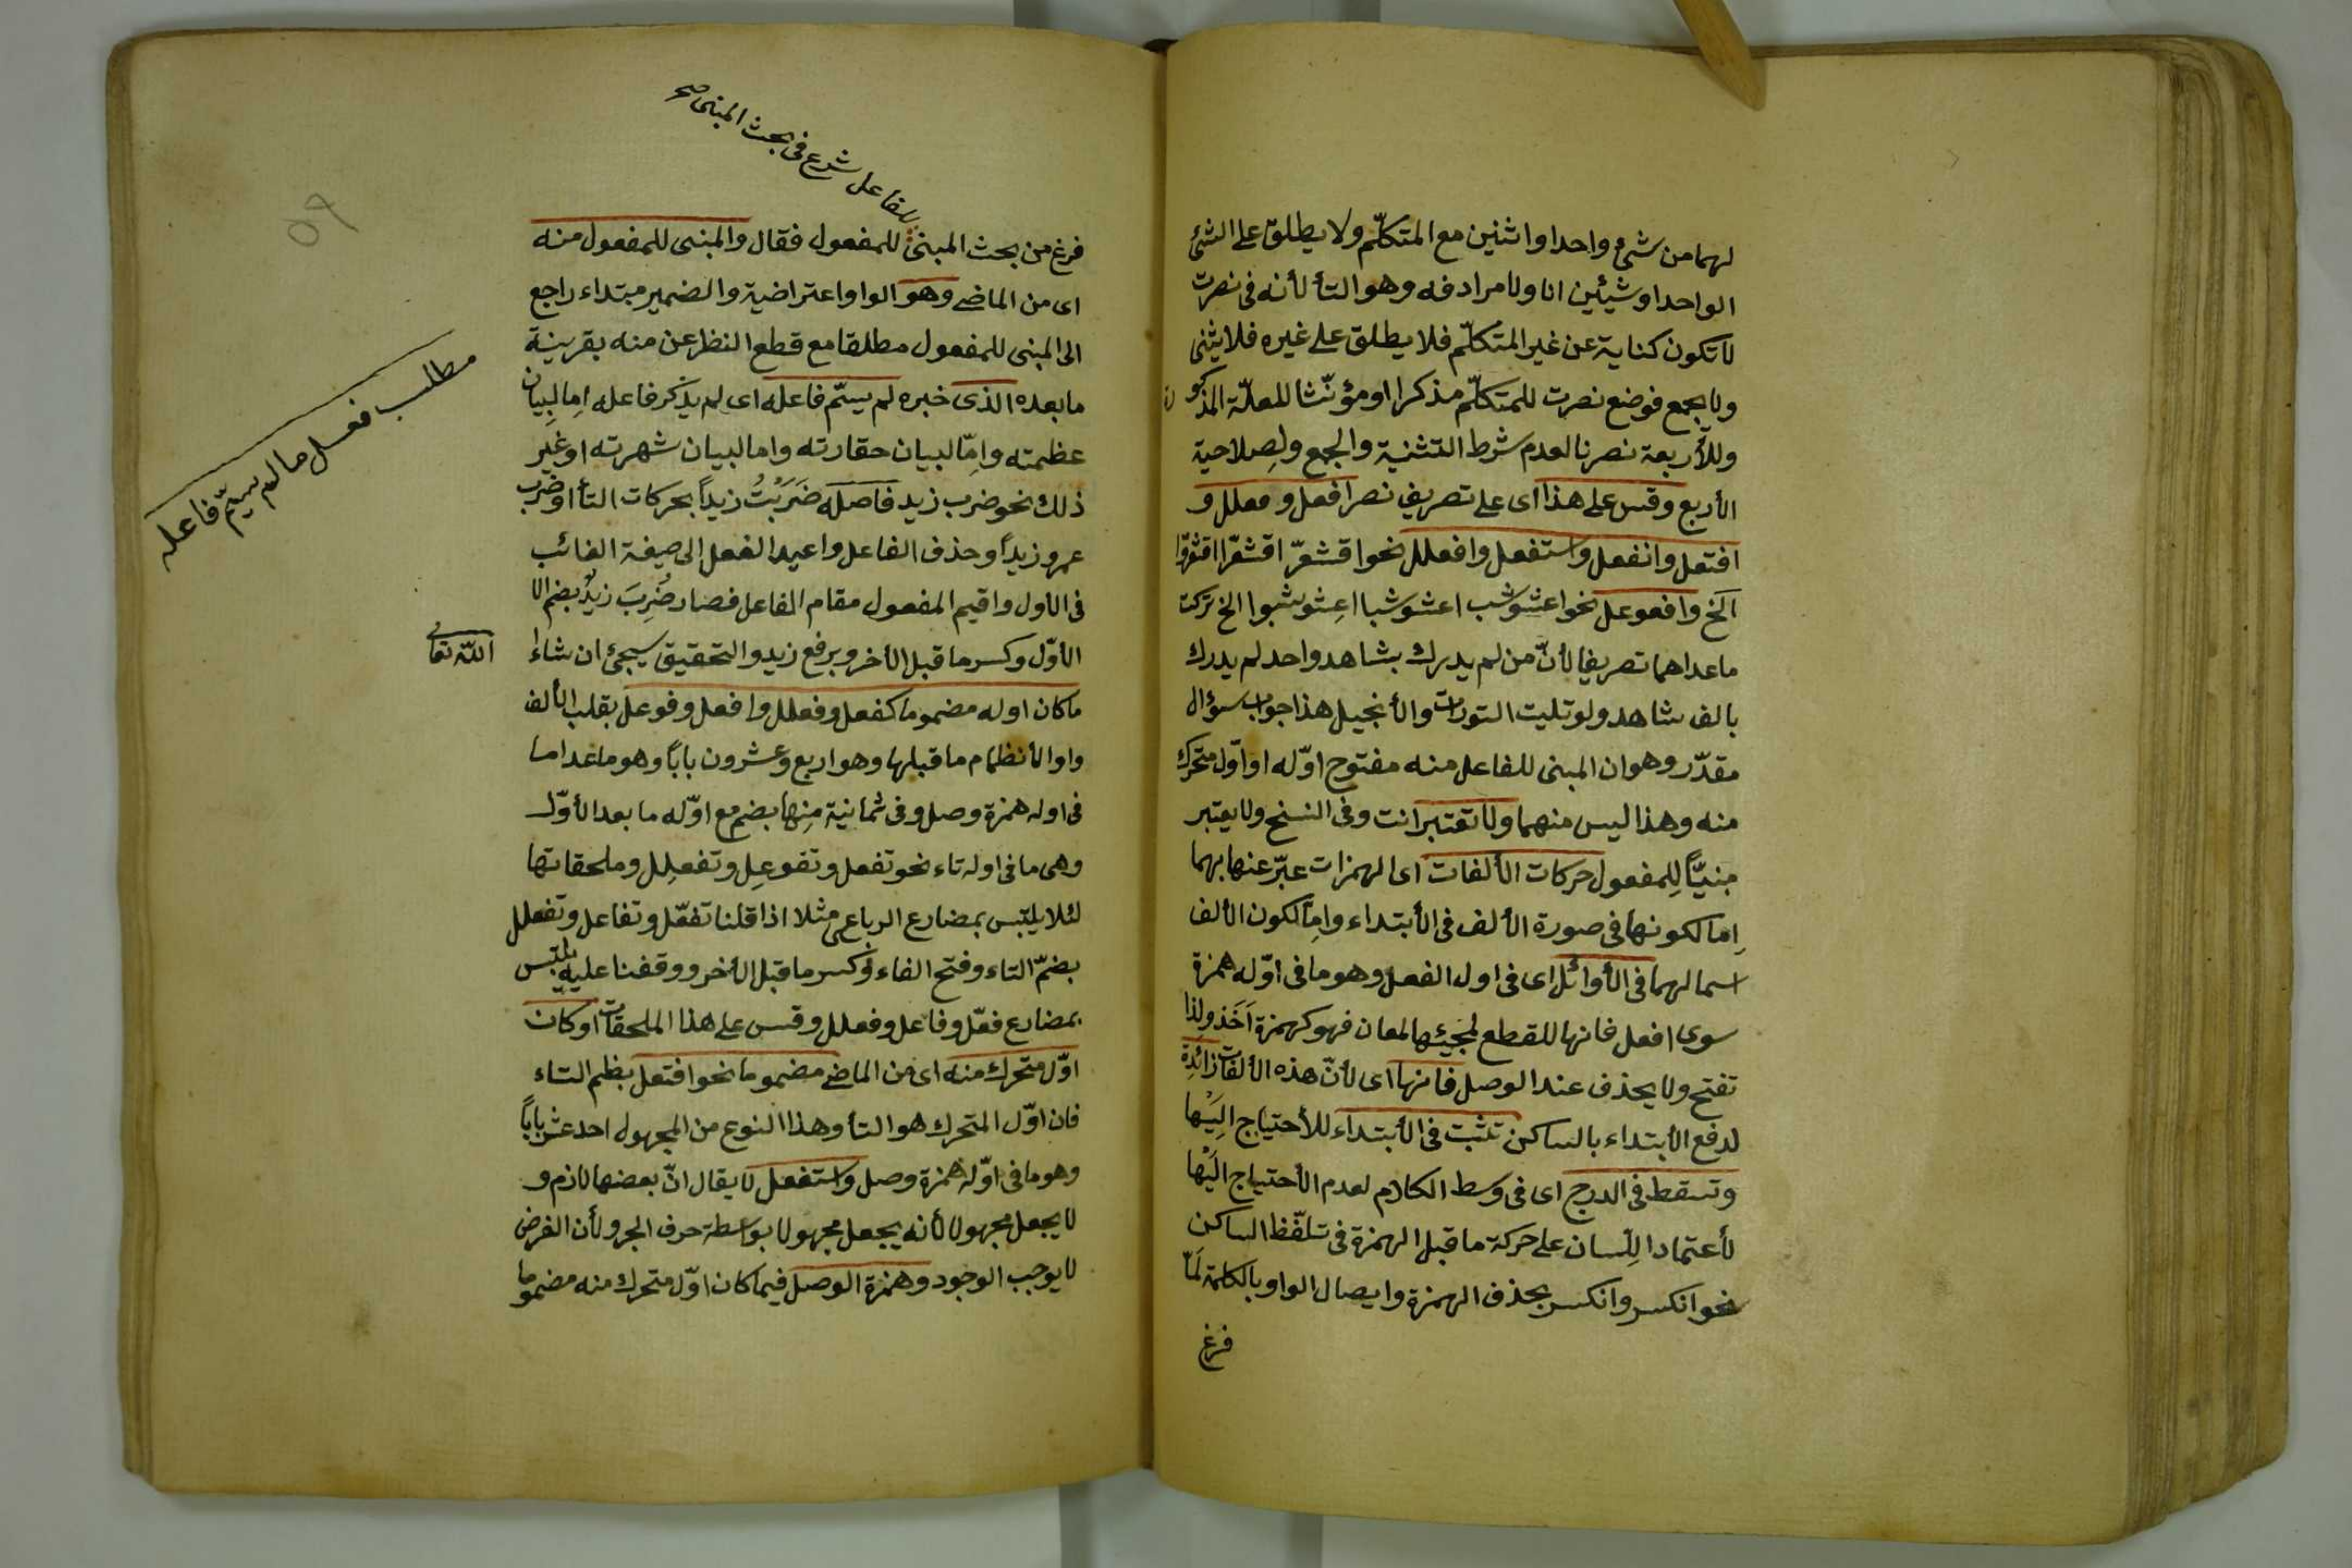 لهما من شئ واحدا واثنين مع المتكلّم ولا يطلق على الشئ
الواحد او شيئين انا ولا مرادفه وهو التأ لأنه فى نصرت
لا تكون كناية عن غير المتكلّم فلا يطلق على غيره فلا يثنى
ولا يجمع فوضع نصرت للمتكلّم مذكرا او مؤنّثا للعلّة المذكور
وللأربعة نصرنا لعدم شرط التثنية والجمع ولِصلاحية
الأربع وقس على هذا اى على تصريف نصر افعل و فعلل و
افتعل وانفعل واستفعل وافعلل نحو اقشعرّ اقشعرّا اقشعرّوا
الخ وافعوعل نحو اعشوشب اعشوشبا اعِشوشبوا الخ تركت
ما عداهما تصريفا لأنّ من لم يدرك بشاهد واحد لم يدرك
بالف شاهد ولو تليت التورات والأنجيل هذا جواب سؤال
مقدّر وهو ان المبنى للفاعل منه مفتوح اوّله او اوّل متحرك
منه وهذا ليس منهما ولا تعتبر انت وفى النسخ ولا يعتبر
مبنيّاً لِلمفعول حركات الألفات اى الهمزات عبّر عنها بهما
اِما لكونها فى صورة الألف فى الأبتداء واِمّا لكون الألف
اسما لهما فى الأوائل اى فى اول الفعل وهو ما فى اوّله همزة
سوى افعل فانها للقطع لمجيئها لمعان فهو كهمزة اَخَذ ولِذا
تفتح ولا يحذف عند الوصل فانها اى لأنّ هذه الألفات زائدِة
لدفع الأبتداء بالساكن تثبت فى الأبتداء للأحتياج اِليَها
وتسقط فى الدرج اى فى وسط الكلام لعدم الأحتياج اليَها
لأعتماد اللِّسان على حركة ما قبل الهمزة فى تلفّظ الساكن
نحو انكسر وانكسر بحذف الهمزة وايصال الواو بالكلمة لمّا
فرغ
للفاعل شرع فى بحث المبنى صح
فرغ من بحث المبنى للمفعول فقال والمبنى للمفعول منه
اى من الماضى وهو الواو اعتراضية والضمير مبتداء راجع
الى المبنى للمفعول مطلقا مع قطع النظر عن منه بقرينة
ما بعده الذى خبره لم يسمّ فاعله اى لم يذكر فاعله اِما لِبيان
عظمته واِمّا لبيان حقارته واما لبيان شهرته او غير
ذلك نحو ضرب زيد فاصله ضَرَبْتُ زيداً بحركات التأ او ضرب
عمرو زيداً وحذف الفاعل واعيد الفعل الى صيغة الغائب
فى الاول واقيم المفعول مقام الفاعل فصار ضُرِبَ زيدٌ بضم الا
الأوّل وكسر ما قبل الأخر وبرفع زيد والتحقيق سيجئ ان شاءَ
الله تعا
ما كان اوله مضموما كفعل وفعلل وافعل وفوعل بقلب الألف
واوا لأنظمام ما قبلها وهو اربع وعشرون باباً وهو ما عدا ما
فى اوله همزة وصل وفى ثمانية مِنها بضم مع اوّله ما بعد الأوّل
وهى ما فى اوله تاء نحو تفعل وتفوعِل وتفعلِل وملحقاتها
لئلا يلتبس بمضارع الرباعى مثلا اذا قلنا تفعّل وتفاعل وتفعلل
بضمّ التاء وفتح الفاء وكسر ما قبل الأخر ووقفنا عليه يلتبس
بمضارع فعّل وفاعل وفعلل وقس على هذا الملحقات او كان
اوّل متحرك منه اى من الماضى مضموما نحو افتعل بظم التاء
فان اوّل المتحرك هو التأ وهذا النوع من المجهول احد عشر باباً
وهو ما فى اوّله همزة وصل واستفعل لا يقال انّ بعضها لازم و
لا يجعل مجهولا لأنه يجعل مجهولا بواسطة حرف الجر ولأن الفرض
لا يوجب الوجود وهمزة الوصل فيما كان اوّل متحرك منه مضموما
مطلب فعل ما لم يسمّ فاعله
٥٩